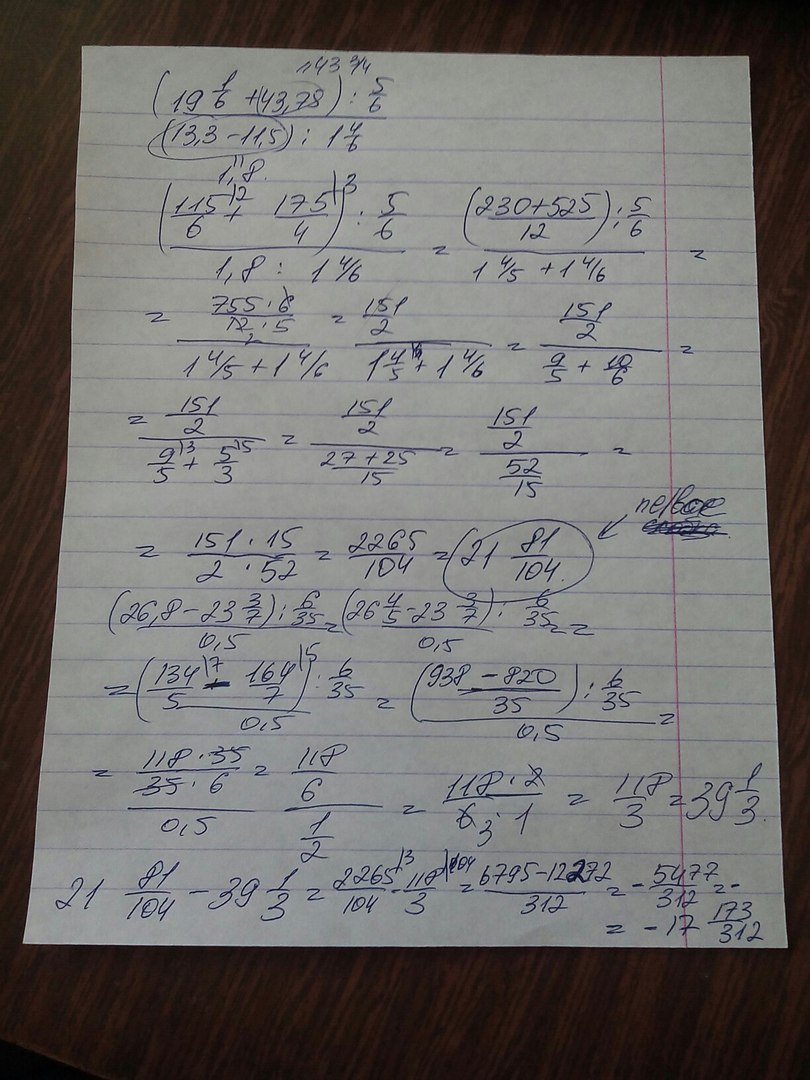 +43 3/4
(19 1/6 + 43,78) : 5/6
(13,3 - 11,5) : 1 4/6
1,8.
(115/6 |2 + 175/4 |3) : 5/6 / 1,8 : 1 4/6 = (230+525/12) : 5/6 / 1 4/5 + 1 4/6 =
= 755 · 6/12 · 5 / 1 4/5 + 1 4/6 = 151/2 / 1 4/5 + 1 4/6 = 151/2 / 9/5 + 10/6 =
= 151/2 / 9/5 |3 + 5/3 |5 = 151/2 / 27+25/15 = 151/2 / 52/15 =
первое
= 151 · 15/2 · 52 = 2265/104 = 21 81/104.
(26,8 - 23 3/7) : 6/35 / 0,5 = (26 4/5 - 23 3/7) : 6/35 / 0,5 =
= (134/5 |7 - 164/7 |5) : 6/35 / 0,5 = (938 - 820/35) : 6/35 / 0,5 =
= 118 · 35/35 · 6 / 0,5 = 118/6 / 1/2 = 118 · 2/6 3 · 1 = 118/3 = 39 1/3.
21 81/104 - 39 1/3 = 2265/104 |3 - 118/3 |104 = 6795-12272/312 = - 5477/312 = -
= - 17 173/312